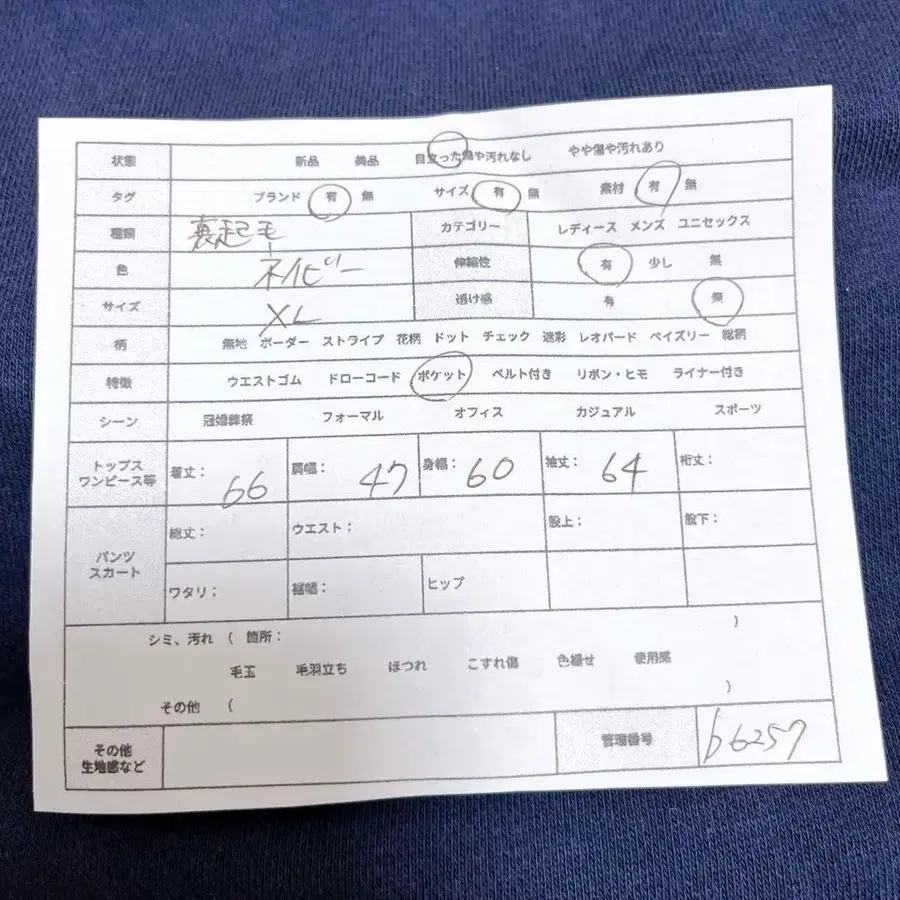 状態 新品 美品 目立った傷や汚れなし やや傷や汚れあり
タグ ブランド 有 無 サイズ 有 無 素材 有 無
種類 裏起毛 カテゴリー レディース メンズ ユニセックス
色 ネイビー 伸縮性 有 少し 無
サイズ XL 透け感 有 無
柄 無地 ボーダー ストライプ 花柄 ドット チェック 迷彩 レオパード ペイズリー 総柄
特徴 ウエストゴム ドローコード ポケット ベルト付き リボン・ヒモ ライナー付き
シーン 冠婚葬祭 フォーマル オフィス カジュアル スポーツ
トップス ワンピース等 着丈: 66 肩幅: 47 身幅: 60 袖丈: 64 裄丈:
パンツ スカート 総丈: ウエスト: 股上: 股下:
ワタリ; 裾幅: ヒップ
シミ、汚れ ( 箇所: )
毛玉 毛羽立ち ほつれ こすれ傷 色褪せ 使用感
その他 ( )
その他 生地感など 管理番号 b6257